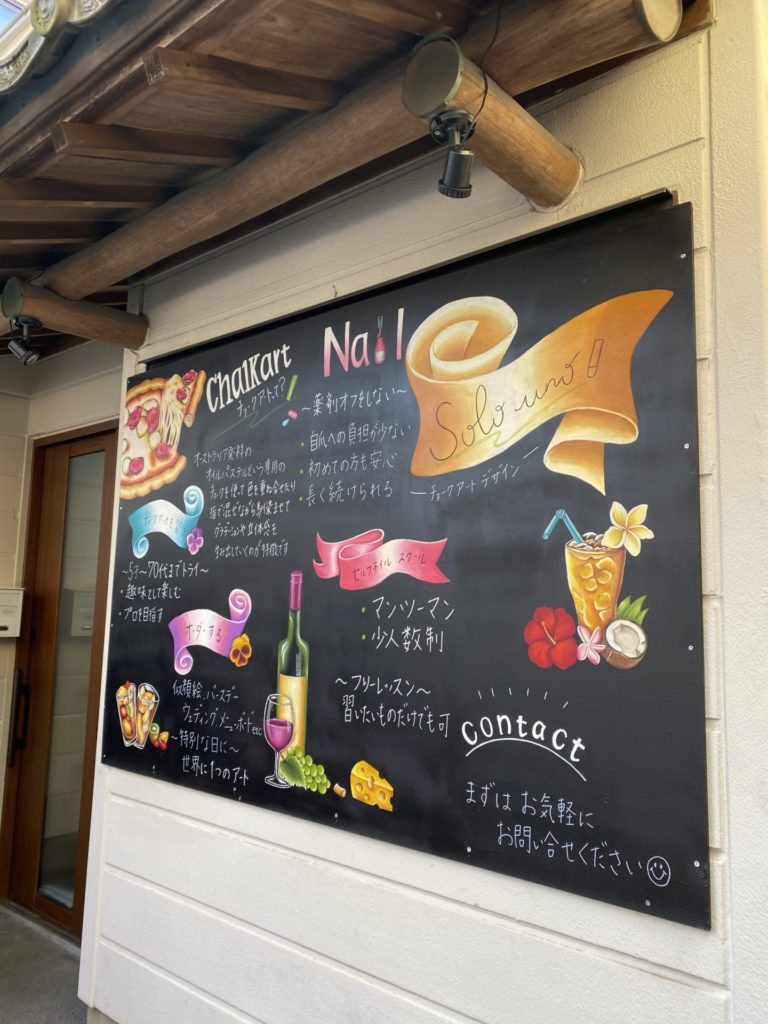 Chalkart
チョークアートって?
オーストラリア発祥の
オイルパステルという専用の
チョークを使って色を重ね合せたり
指で混ぜながら馴染ませて
グラデーションや立体感を
生み出していくのが特徴です
チョークアートを
〜5才〜70代までトライ〜
・趣味として楽しむ
・プロを目指す
オーダーする
似顔絵、バースデー
ウェディング、メニューボードetc
〜特別な日に〜
世界に1つのアート
Nail
〜薬剤オフをしない〜
・自爪への負担が少ない
・初めての方も安心
・長く続けられる
セルフネイル スクール
・マンツーマン
・少人数制
〜フリーレッスン〜
習いたいものだけでも可
Solo uno
ーチョークアートデザインー
contact
まずは お気軽に
お問い合せください